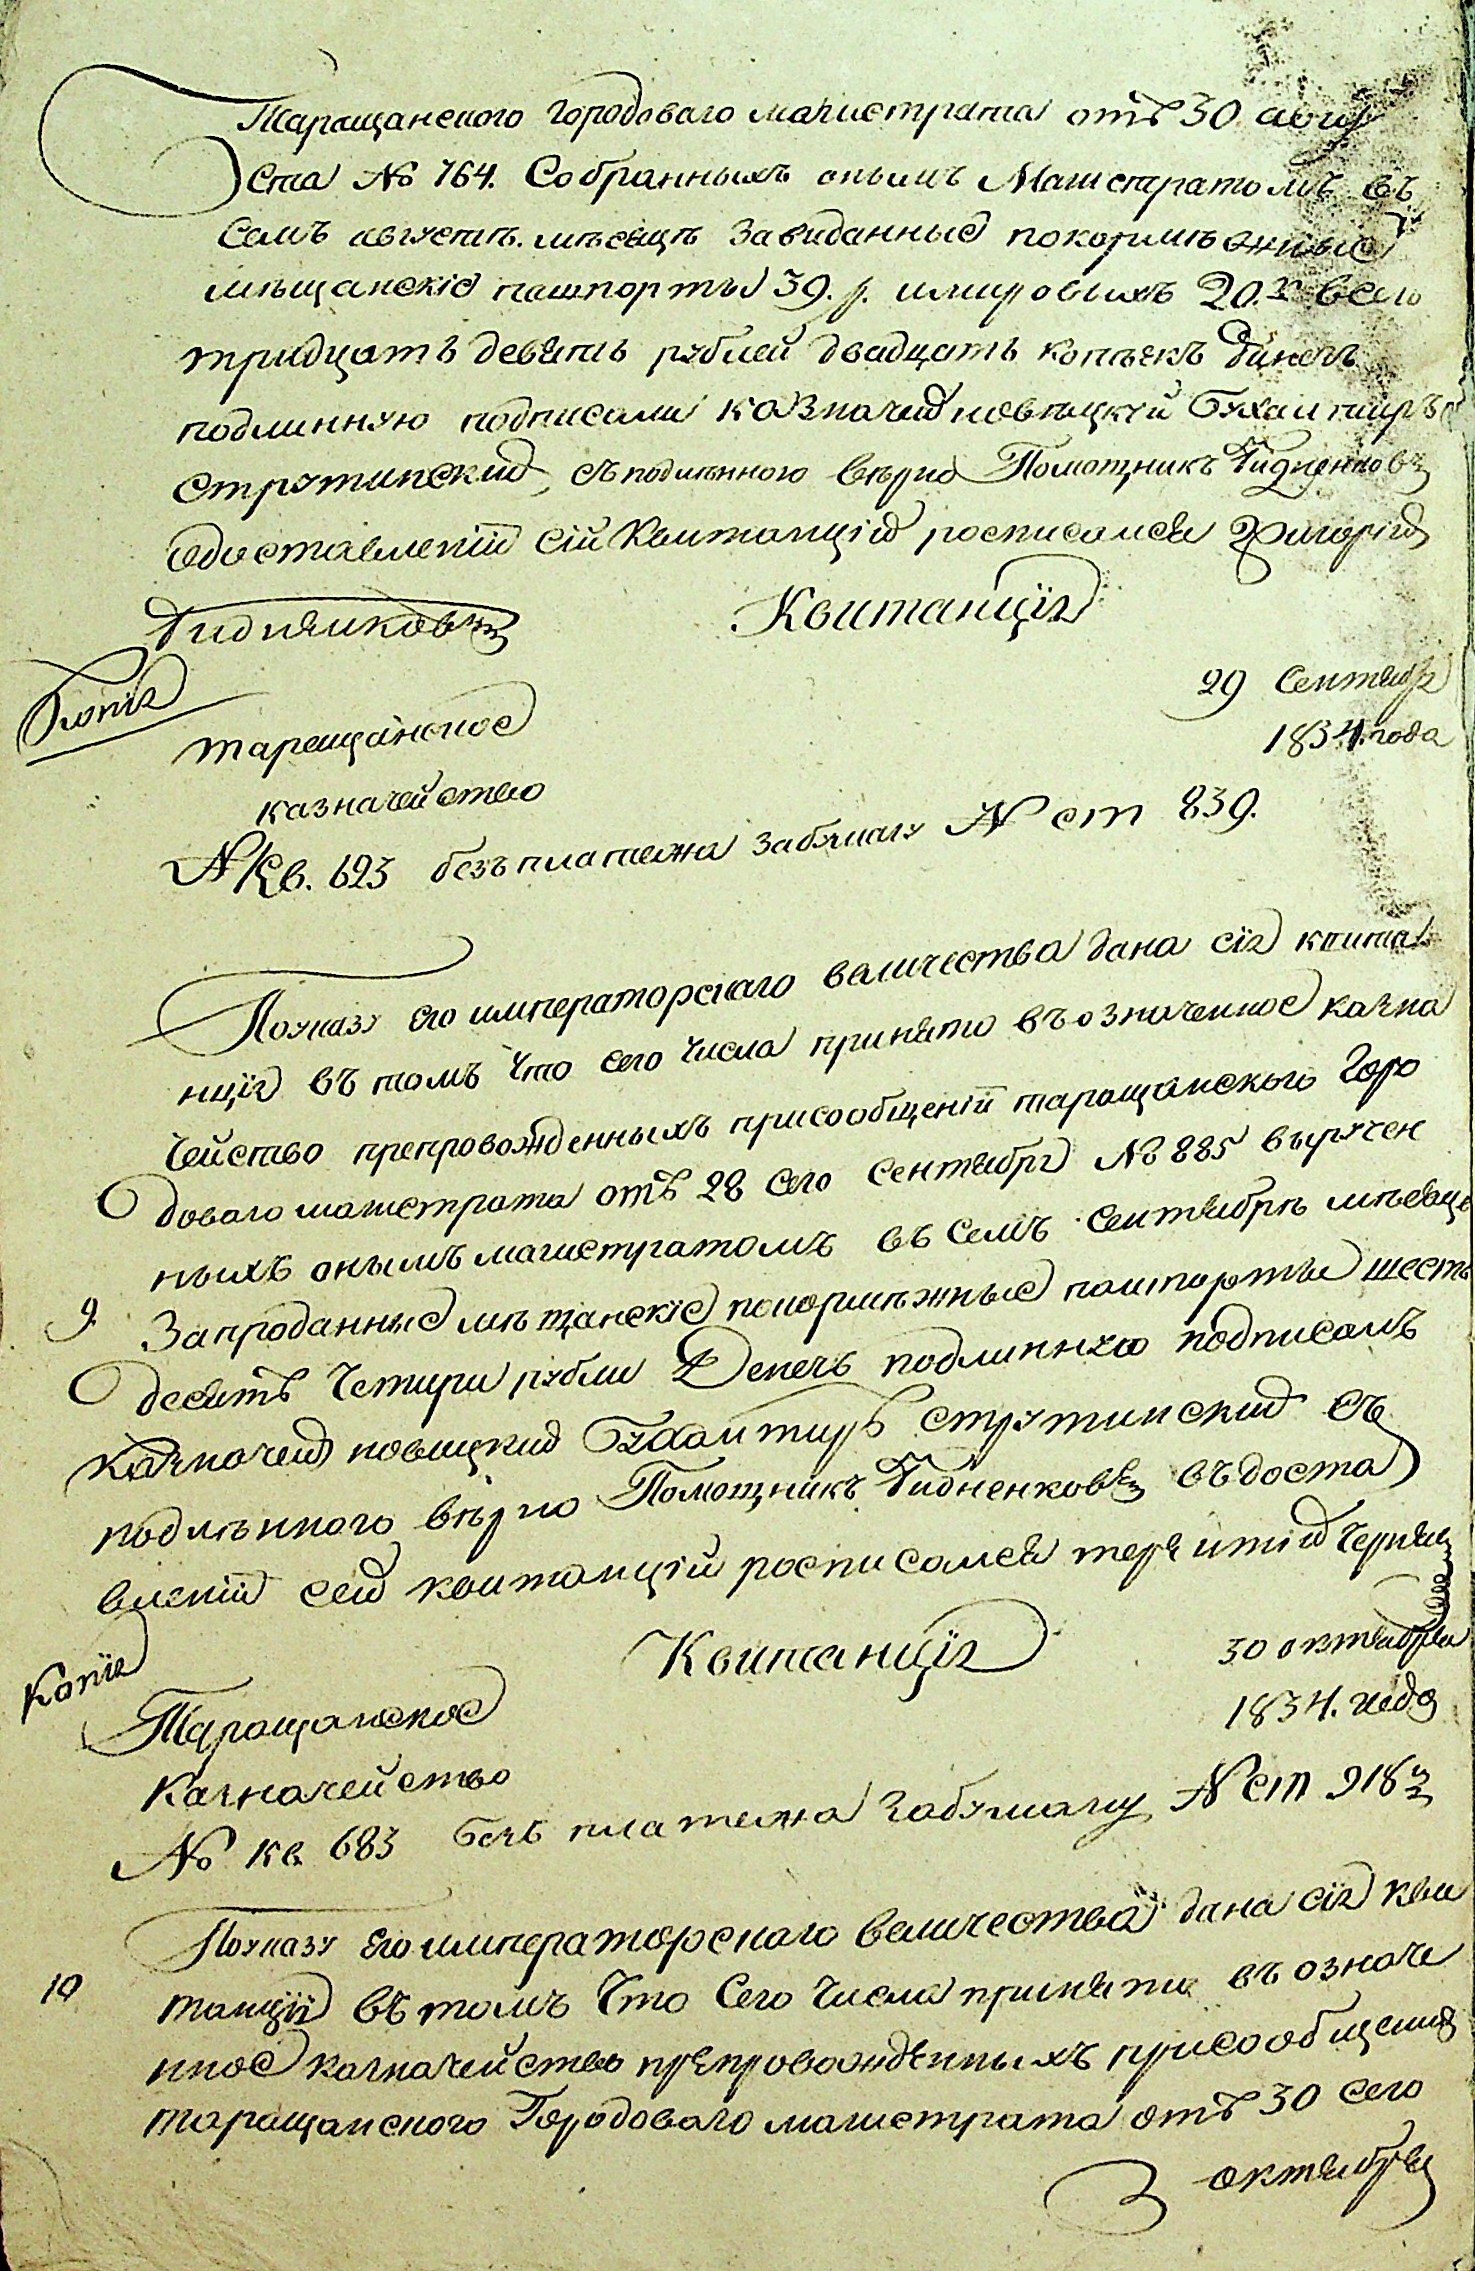 Таращанского Городоваго магистрата отъ 30 авгу
ста № 764. Собранныхъ онымъ Магистратомъ въ
семъ августѣ. мѣсецѣ за виданные покормѣжные
мѣщанскіе пашпорты 39. р. 20. к всего
тридцать девять рублей двадцать копѣекъ
подлинную подписали казначей новицкій Бухалтиръ
струтинский, съ подлѣнного вѣрно Помощникъ Гидненковъ
въдоставленіи сій Квитанціи росписался Григорій
Гидняиковъ
Квитанція
29 Сентября
1834. года
Копія
таращанское
казначейство
№ Кв. 623 безъ платежа за бумагу № ст 839.
По указу Его императорскаго величества дана сія квита
нція въ томъ что сего числа принято въ означенное казна
чейство препровожденныхъ при сообщеніи таращанского Горо
доваго магистрата отъ 28 сего сентября № 885 выручен
ныхъ онымъ магистратомъ въ семъ сентябрѣ мѣсецѣ
9. За проданные мѣщанскіе покормѣжные пашпорты шесть
десятъ четири рубли Денегъ подлинную подписалъ
казначей новицкий Бухалтиръ струтинский съ
подлѣнного вѣрно Помощникъ Гидненковъ въ доста
вленіи сей квитанціи росписался
Копія
Квитанція
30 октября
1834. года
Таращанское
Казначейство
№ кв 683 безъ платежа за бумагу № ст 918
По указу Его императорскаго величества дана сія кви
10
танція въ томъ что Сего числа принята въ означе
нное казначейство препровожденныхъ при сообщении
таращанского Городоваго магистрата отъ 30 сего
октября